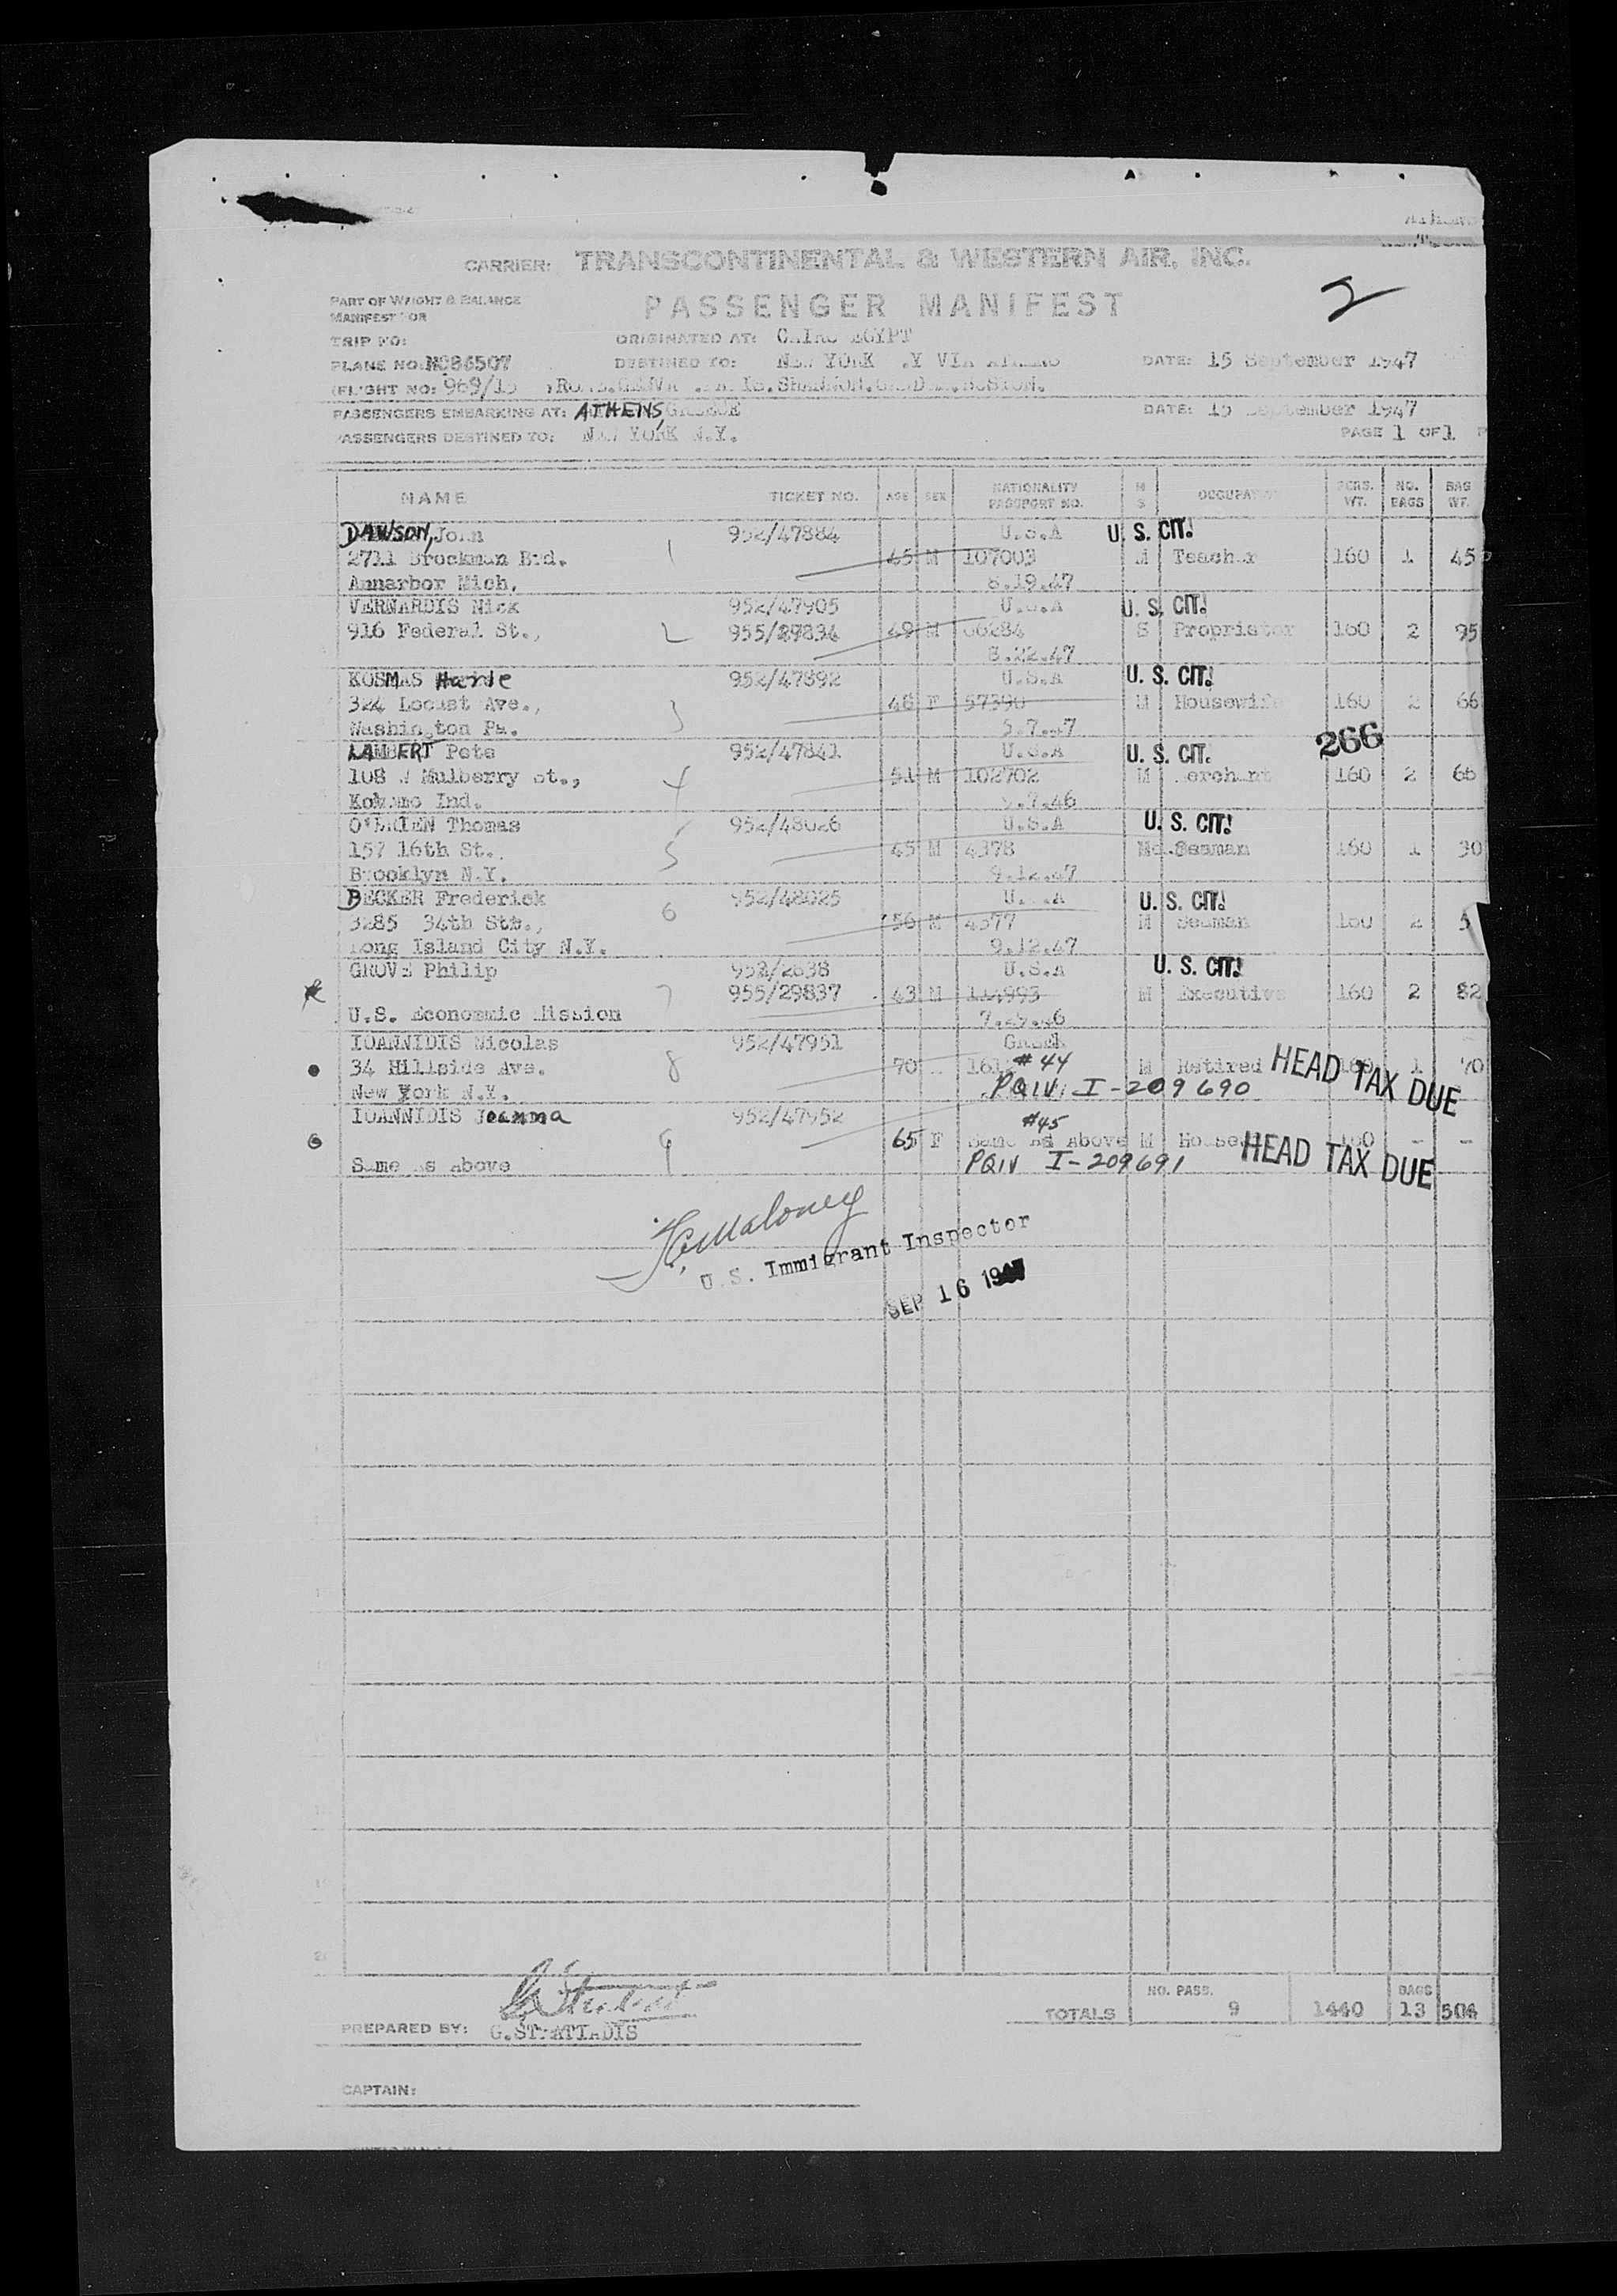 CARRIER: TRANSCONTINENTAL & WESTERN AIR, INC.
PART OF WEIGHT & BALANCE
MANIFEST FOR
PASSENGER MANIFEST
2
TRIP NO:
ORIGINATED AT: CAIRO EGYPT
PLANE NO: NC86507
DESTINED TO: NEW YORK N.Y VIA ATHENS
DATE: 15 September 1947
FLIGHT NO: 969/15 ROME. SHANNON. BOSTON.
PASSENGERS EMBARKING AT: ATHENS, GREECE
DATE: 15 September 1947
PASSENGERS DESTINED TO: NEW YORK N.Y.
PAGE 1 OF 1
NAME TICKET NO. AGE SEX NATIONALITY PASSPORT NO. M S OCCUPATION PERS. WT. NO. BAGS BAG WT.
DAWSON, John 952/47884 U.S.A U. S. CIT.
2711 Brockman Bvd. 1 45 M 107003 M Teacher 160 1 45
Annarbor Mich. 8.19.47
VERNARDIS Nick 952/47905 U.S.A U. S. CIT.
916 Federal St., 2 955/29834 49 M 66284 S Propriator 160 2 95
8.22.47
KOSMAS Marie 952/47892 U.S.A U. S. CIT.
324 Locust Ave., 3 48 F 57390 M Housewife 160 2 66
Washington Pa. 5.7.47
LAMBERT Pete 952/47841 U.S.A U. S. CIT. 266
108 W Mulberry St., 4 51 M 102702 M Merchant 160 2 66
Kokomo Ind. 5.7.46
O'BRIEN Thomas 952/48026 U.S.A U. S. CIT.
157 16th St. 5 45 M 4378 Seaman 160 1 30
Brooklyn N.Y. 9.12.47
BECKER Frederick 952/48025 U.S.A U. S. CIT.
3285 34th Stt., 6 56 M 4377 M Seaman 160 2 5
Long Island City N.Y. 9.12.47
GROVE Philip 952/2838 U.S.A U. S. CIT.
7 955/29837 43 M M Executive 160 2 82
U.S. Economic Mission
IOANNIDIS Nicolas 952/47951 GREEK
34 Hillside Ave. 8 70 #44 M Retired 160 1 70 HEAD TAX DUE
New York N.Y. PQIV I-209690
IOANNIDIS Joanna 952/47952 #45
9 65 F Same As Above M 160 - - HEAD TAX DUE
Same As Above PQIV I-209691
Maloney
U.S. Immigrant Inspector
SEP 16 1947
NO. PASS. BAGS
TOTALS 9 1440 13 504
PREPARED BY: G.STRATIADIS
CAPTAIN: